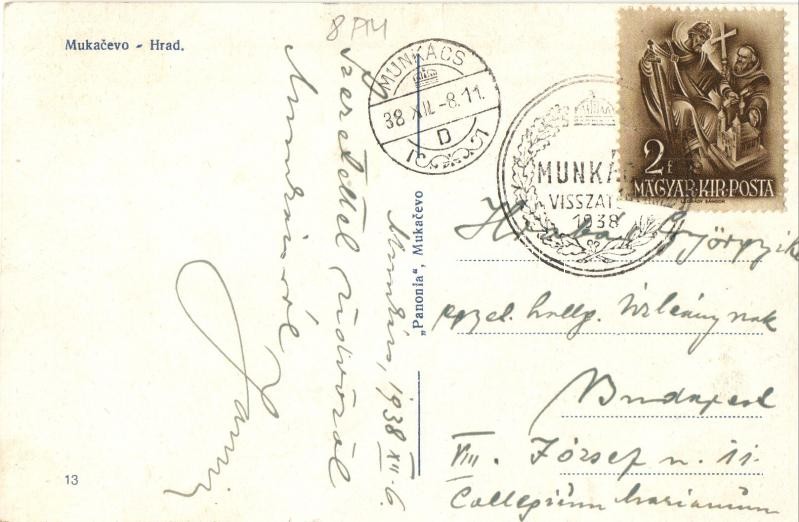 8 PM
Mukačevo - Hrad.
MUNKÁCS
38 XII.-8.11.
D
MUNKÁCS
VISSZATÉ
1938
2 f
MAGYAR·KIR·POSTA
LÉGRÁDY SÁNDOR
Munkács, 1938 XII. 6.
Szeretettel üdvözöl
Munkácsról
„Panonia", Mukačevo
Györgyike
egyel. hallg. Úrleánynak
Budapest
VIII. József u. 11.
Collegium Marianum
13